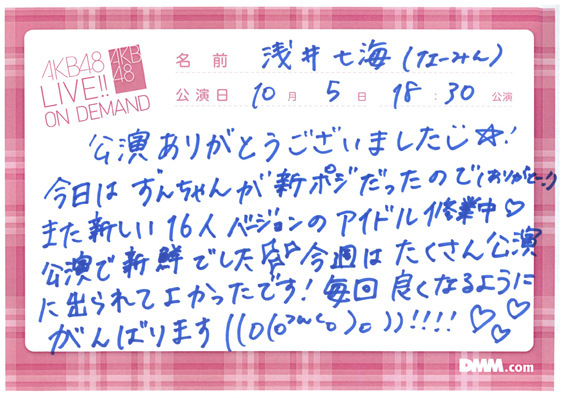 AKB48
LIVE!!
ON DEMAND
AKB
48
名前 浅井七海(なーみん)
公演日 10月 5日 18:30 公演
公演ありがとうございました☆!
今日はずんちゃんが新ポジだったので(ありがとー!)
また新しい16人バージョンのアイドル修業中♡
公演で新鮮でした 今週はたくさん公演
に出られてよかったです!毎回良くなるように
がんばります !!!!♡♡♡
DMM.com